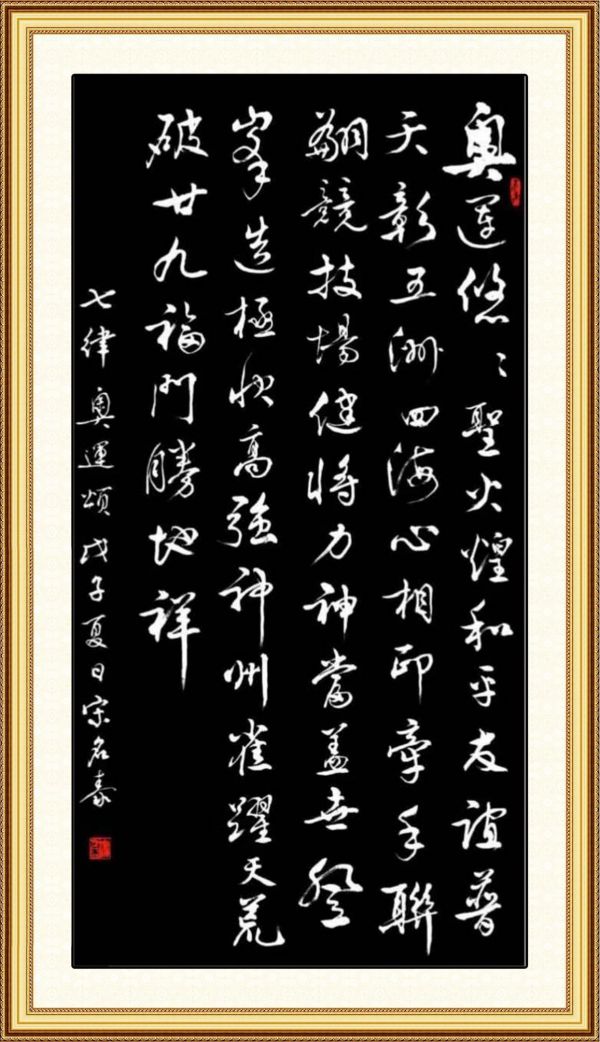 奧運悠〻聖火煌和平友誼普
天彰五洲四海心相印牽手聯
翩競技場健將力神當蓋世登
峯造極狀高強神州雀躍天荒
破廿九福門勝地祥
七律奧運頌戊子夏日宋名泰